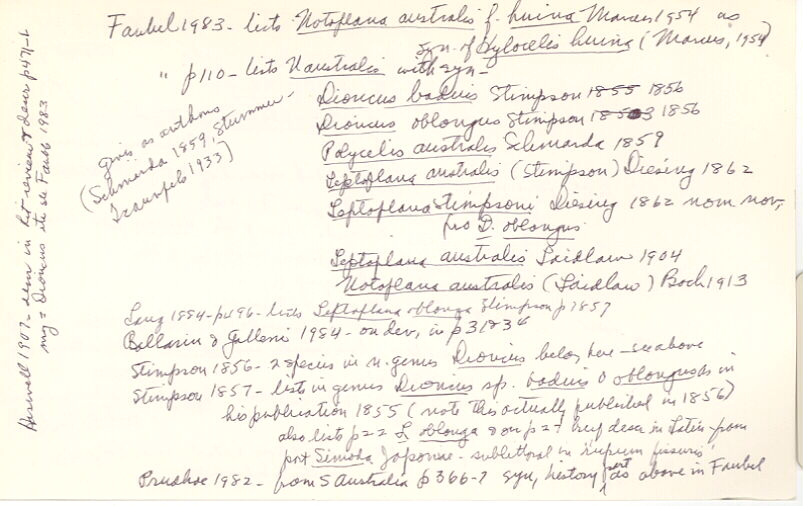 Faubel 1983 - lists Notoplana australis f. huina Marcus 1954 as
syn. of Stylocelis huina (Marcus, 1954)
" p110 - lists N australis with syn -
Dioncus badius Stimpson 1855 1856
Dioncus oblongus Stimpson 1853 1856
Polycelis australis Schmarda 1859
Leptoplana australis (Stimpson) Diesing 1862
Leptoplana stimpsoni Diesing 1862 nom nov,
pro D. oblongus
Leptoplana australis Laidlaw 1904
Notoplana australis (Laidlaw) Bock 1913
gives as authors
(Schmarda 1859, Stummer-
Traunfels 1933)
Lang 1884 - p496 - lists Leptoplana oblonga Stimpson p 1857
Ballarin & Galleni 1984 - on dev, in p 31&34
Stimpson 1856 - 2 species in n. genus Dioncus belong here - see above
Stimpson 1857 - lists in genus Dioncus sp. badius & oblongus as in
his publication 1855 (note this actually published in 1856)
also lists p22 L oblonga & on p27 brief descr in Latin from
port Simoda Japonae - sublittoral in rupium fissuris'
Prudhoe 1982 - from S Australia p 366-7 syn, history part as above in Faubel
Haswell 1907 - desc in lit review & descr p471-